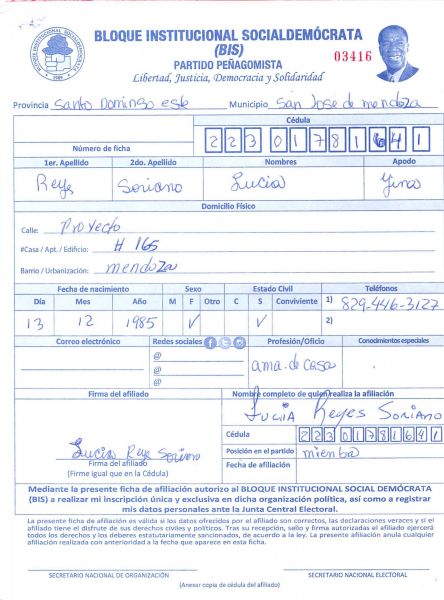 BLOQUE INSTITUCIONAL SOCIALDEMÓCRATA
(BIS)
PARTIDO PEÑAGOMISTA
03416
Libertad, Justicia, Democracia y Solidaridad
BLOQUE INSTITUCIONAL SOCIALDEMOCRATA
Provincia Santo Domingo este Municipio San Jose de mendoza
Número de ficha Cédula
22301781641
1er. Apellido 2do. Apellido Nombres Apodo
Reyes Soriano Lucia Yina
Domicilio Físico
Calle: Proyecto
#Casa / Apt. / Edificio: # 165
Barrio / Urbanización: mendoza
Fecha de nacimiento Sexo Estado Civil Teléfonos
Día Mes Año M F Otro C S Conviviente 1) 829-446-3127
13 12 1985 ✓ ✓ 2)
Correo electrónico Redes sociales Profesión/Oficio Conocimientos especiales
@
@ ama-de casa
@
Firma del afiliado Nombre completo de quien realiza la afiliación
Lucia Reyes Soriano
Cédula 22301781641
Lucia Reye Soriano Posición en el partido mienba
Firma del afiliado Fecha de afiliación
(Firme igual que en la Cédula)
Mediante la presente ficha de afiliación autorizo al BLOQUE INSTITUCIONAL SOCIAL DEMÓCRATA
(BIS) a realizar mi inscripción única y exclusiva en dicha organización política, así como a registrar
mis datos personales ante la Junta Central Electoral.
La presente ficha de afiliación es válida si los datos ofrecidos por el afiliado son correctos, las declaraciones veraces y si el
afiliado tiene el disfrute de sus derechos civiles y políticos. Tras su recepción, sello y firma autorizadas el afiliado ejercerá
todos los derechos y los deberes estatutariamente sancionados, de acuerdo a la ley. La presente afiliación anula cualquier
afiliación realizada con anterioridad a la fecha que aparece en esta ficha.
SECRETARIO NACIONAL DE ORGANIZACIÓN SECRETARIO NACIONAL ELECTORAL
(Anexar copia de cédula del afiliado)